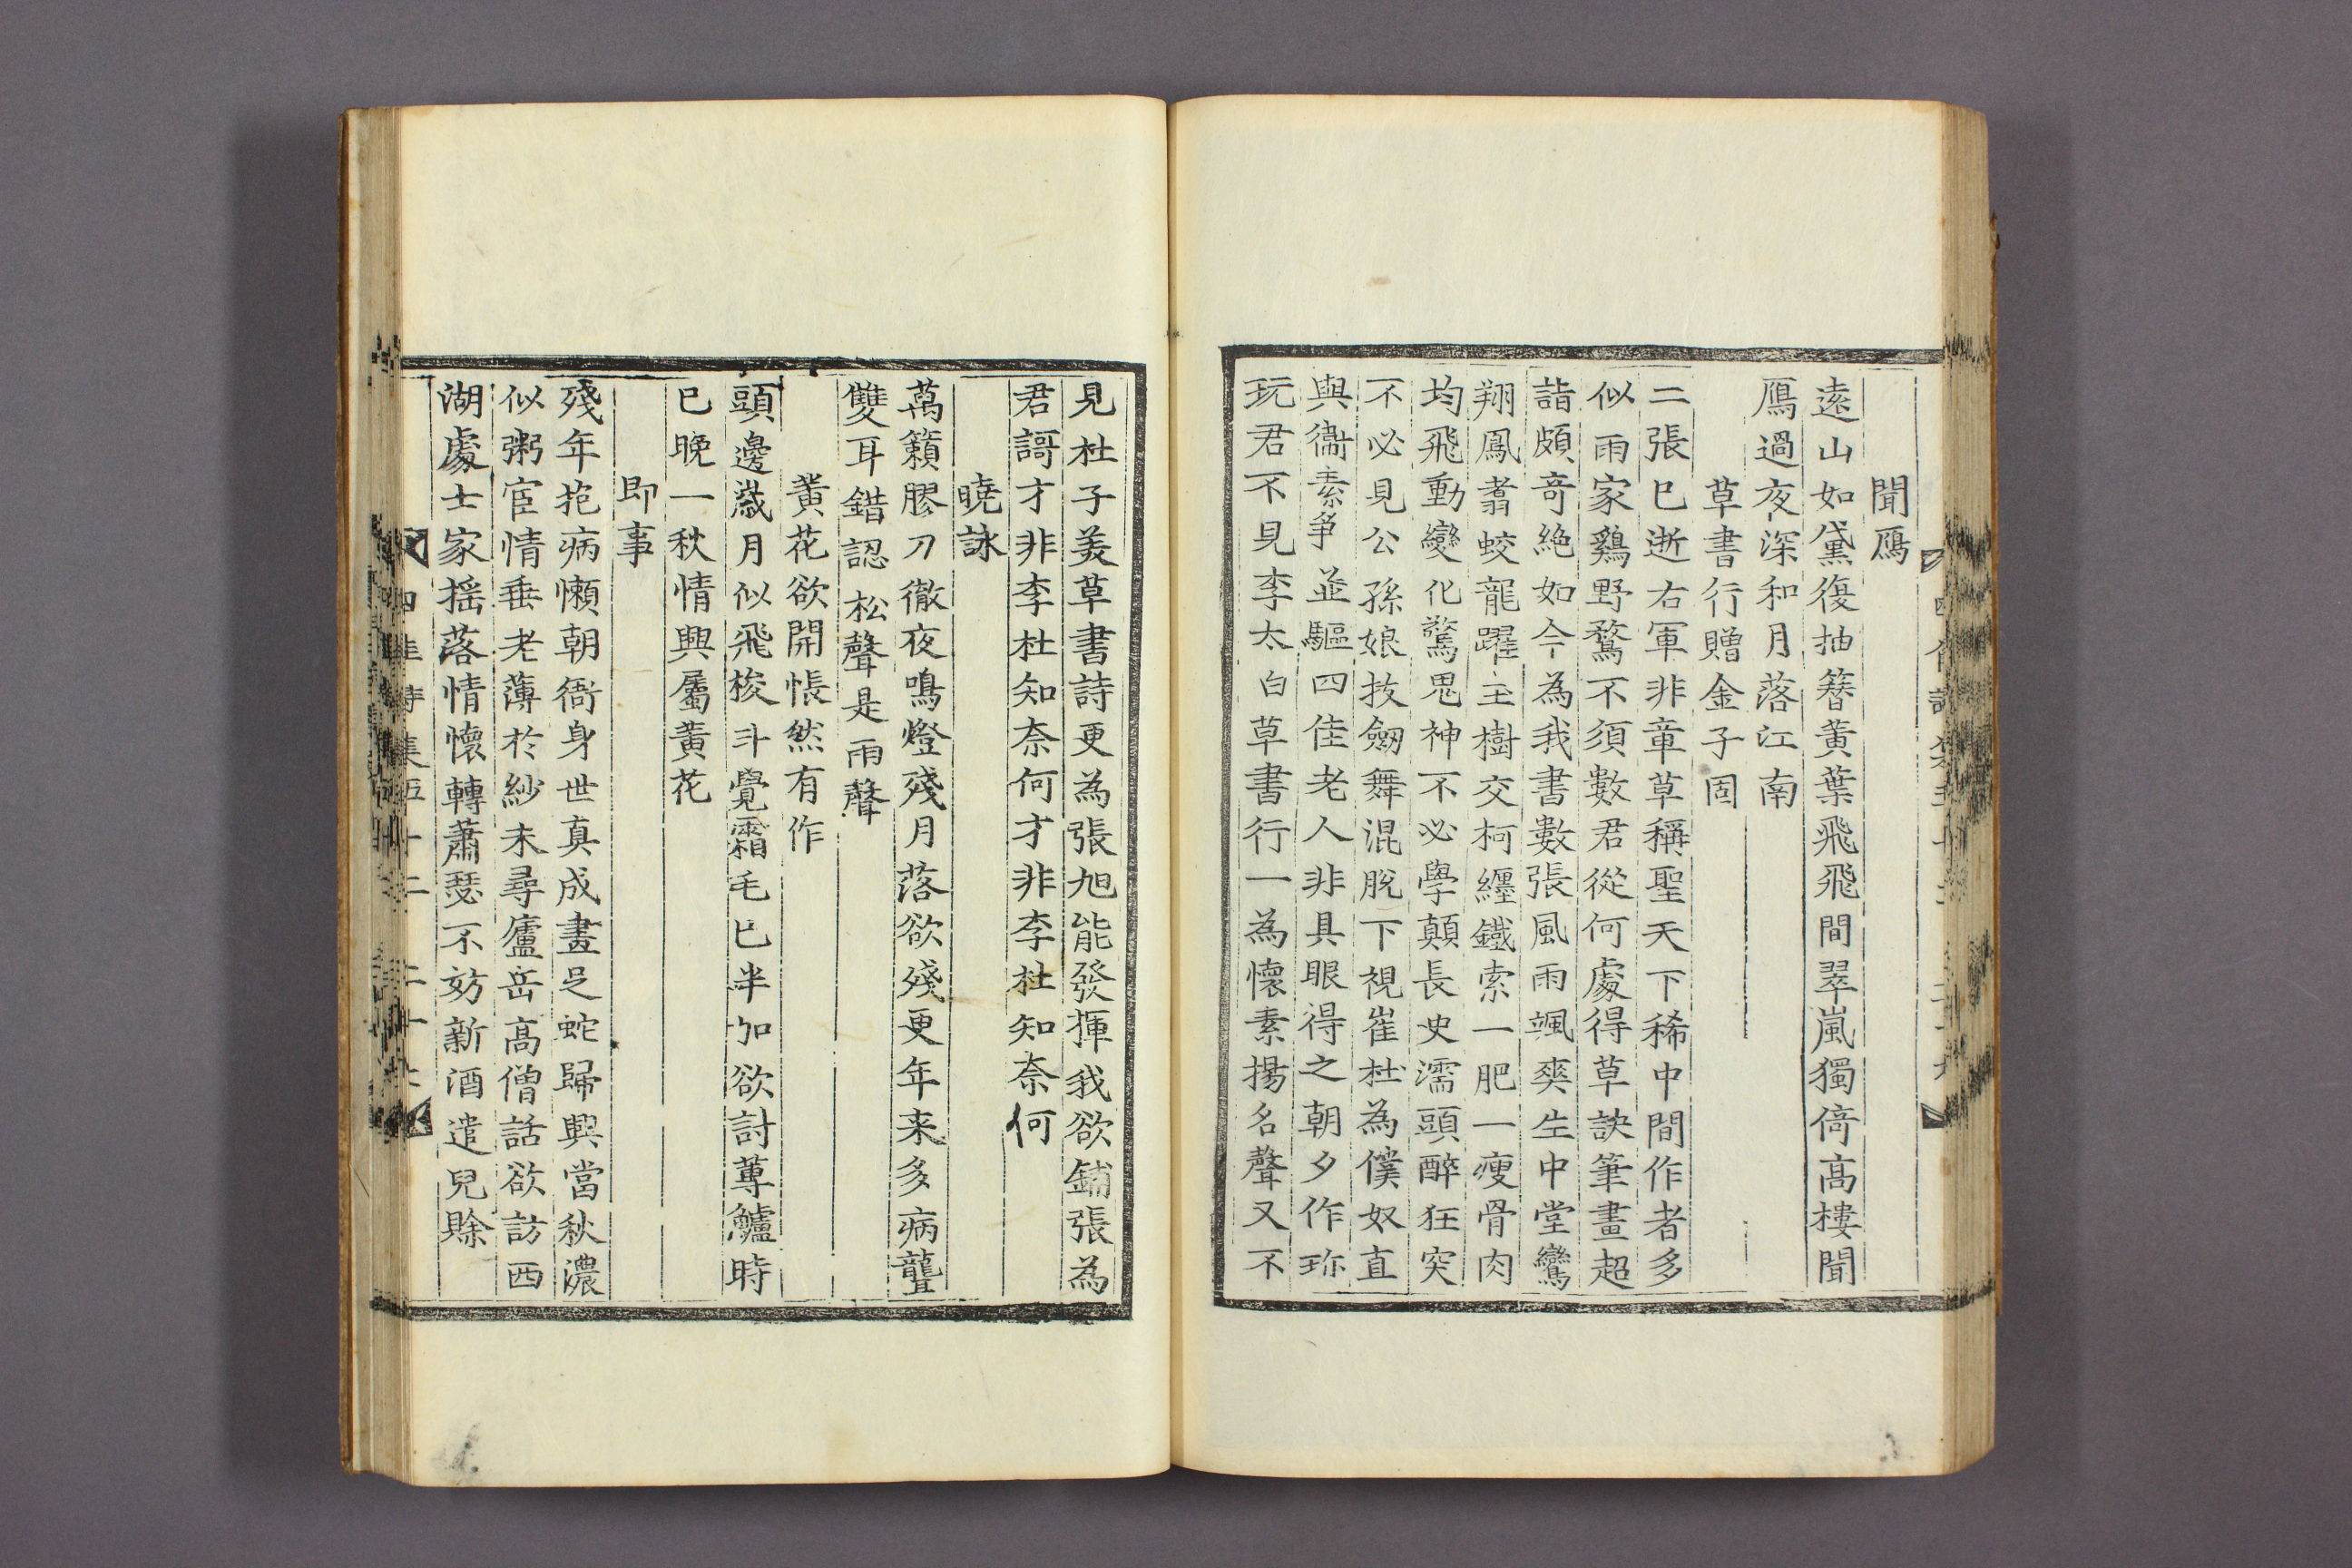 聞鴈
遠山如黛復抽簪黃葉飛飛間翠嵐獨倚高樓聞
鴈過夜深和月落江南
草書行贈金子固
二張已逝右軍非章草稱聖天下稀中間作者多
似雨家鷄野鶩不須數君從何處得草訣筆畫超
詣頗奇絶如今為我書數張風雨颯爽生中堂鸞
翔鳳翥蛟龍躍玉樹交柯纒鐵索一肥一瘦骨肉
均飛動變化驚鬼神不必學顛長史濡頭醉狂突
不必見公孫娘技劒舞混脫下視崔杜為僕奴直
與衞素爭並驅四佳老人非具眼得之朝夕作珎
玩君不見李太白草書行一為懷素揚名聲又不
見杜子美草書詩更為張旭能發揮我欲鋪張為
君謌才非李杜知奈何才非李杜知奈何
曉詠
萬籟膠刀徹夜鳴燈殘月落欲殘更年来多病聾
雙耳錯認松聲是雨聲
黃花欲開悵然有作
頭邊歲月似飛梭斗覺霜毛已半加欲討蓴鱸時
已晚一秋情興屬黃花
即事
殘年抱病懶朝衙身世真成畫足蛇歸興當秋濃
似粥宦情垂老薄於紗未尋廬岳高僧話欲訪西
湖處士家揺落情懷轉蕭瑟不妨新酒遣兒賖
四佳詩集五十二 二十